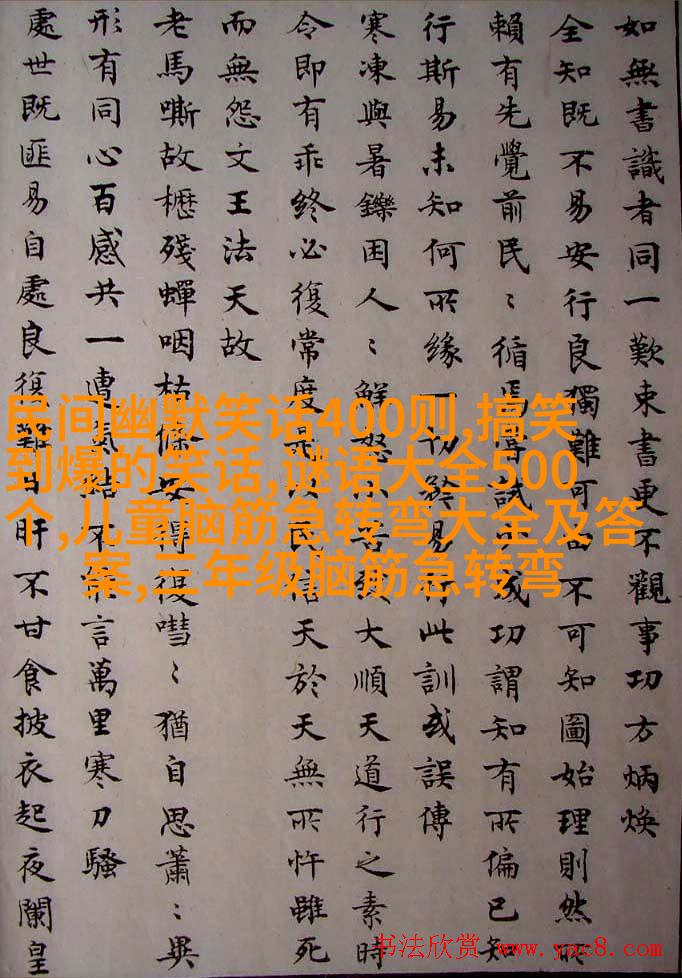 如無書識者同一歎束書更不觀事功方炳煥
全知既不易安行良獨難可不可知圖始理則然所
賴有先覺前民〻循焉試成功謂知有所偏已知
行斯易未知何所緣一切易行此訓或誤傳
寒凍與暑鑠困人〻鮮怒小大順天道行之素時
令即有乖終必復常度是以民信天於天無所忤雖死
而無怨文王法天故
老馬嘶故櫪殘蟬咽枯條安得復嘒〻猶自思蕭〻異
形有同心百感共一遭氣結不言萬里寒刀騷
處世既匪易自處良復難日旰不甘食披衣起夜闌皇
民间幽默笑话400则,搞笑
到爆的笑话,谜语大全500
个,儿童脑筋急转弯大全及答
案,三年级脑筋急转弯
书法欣赏 www.yac8.com